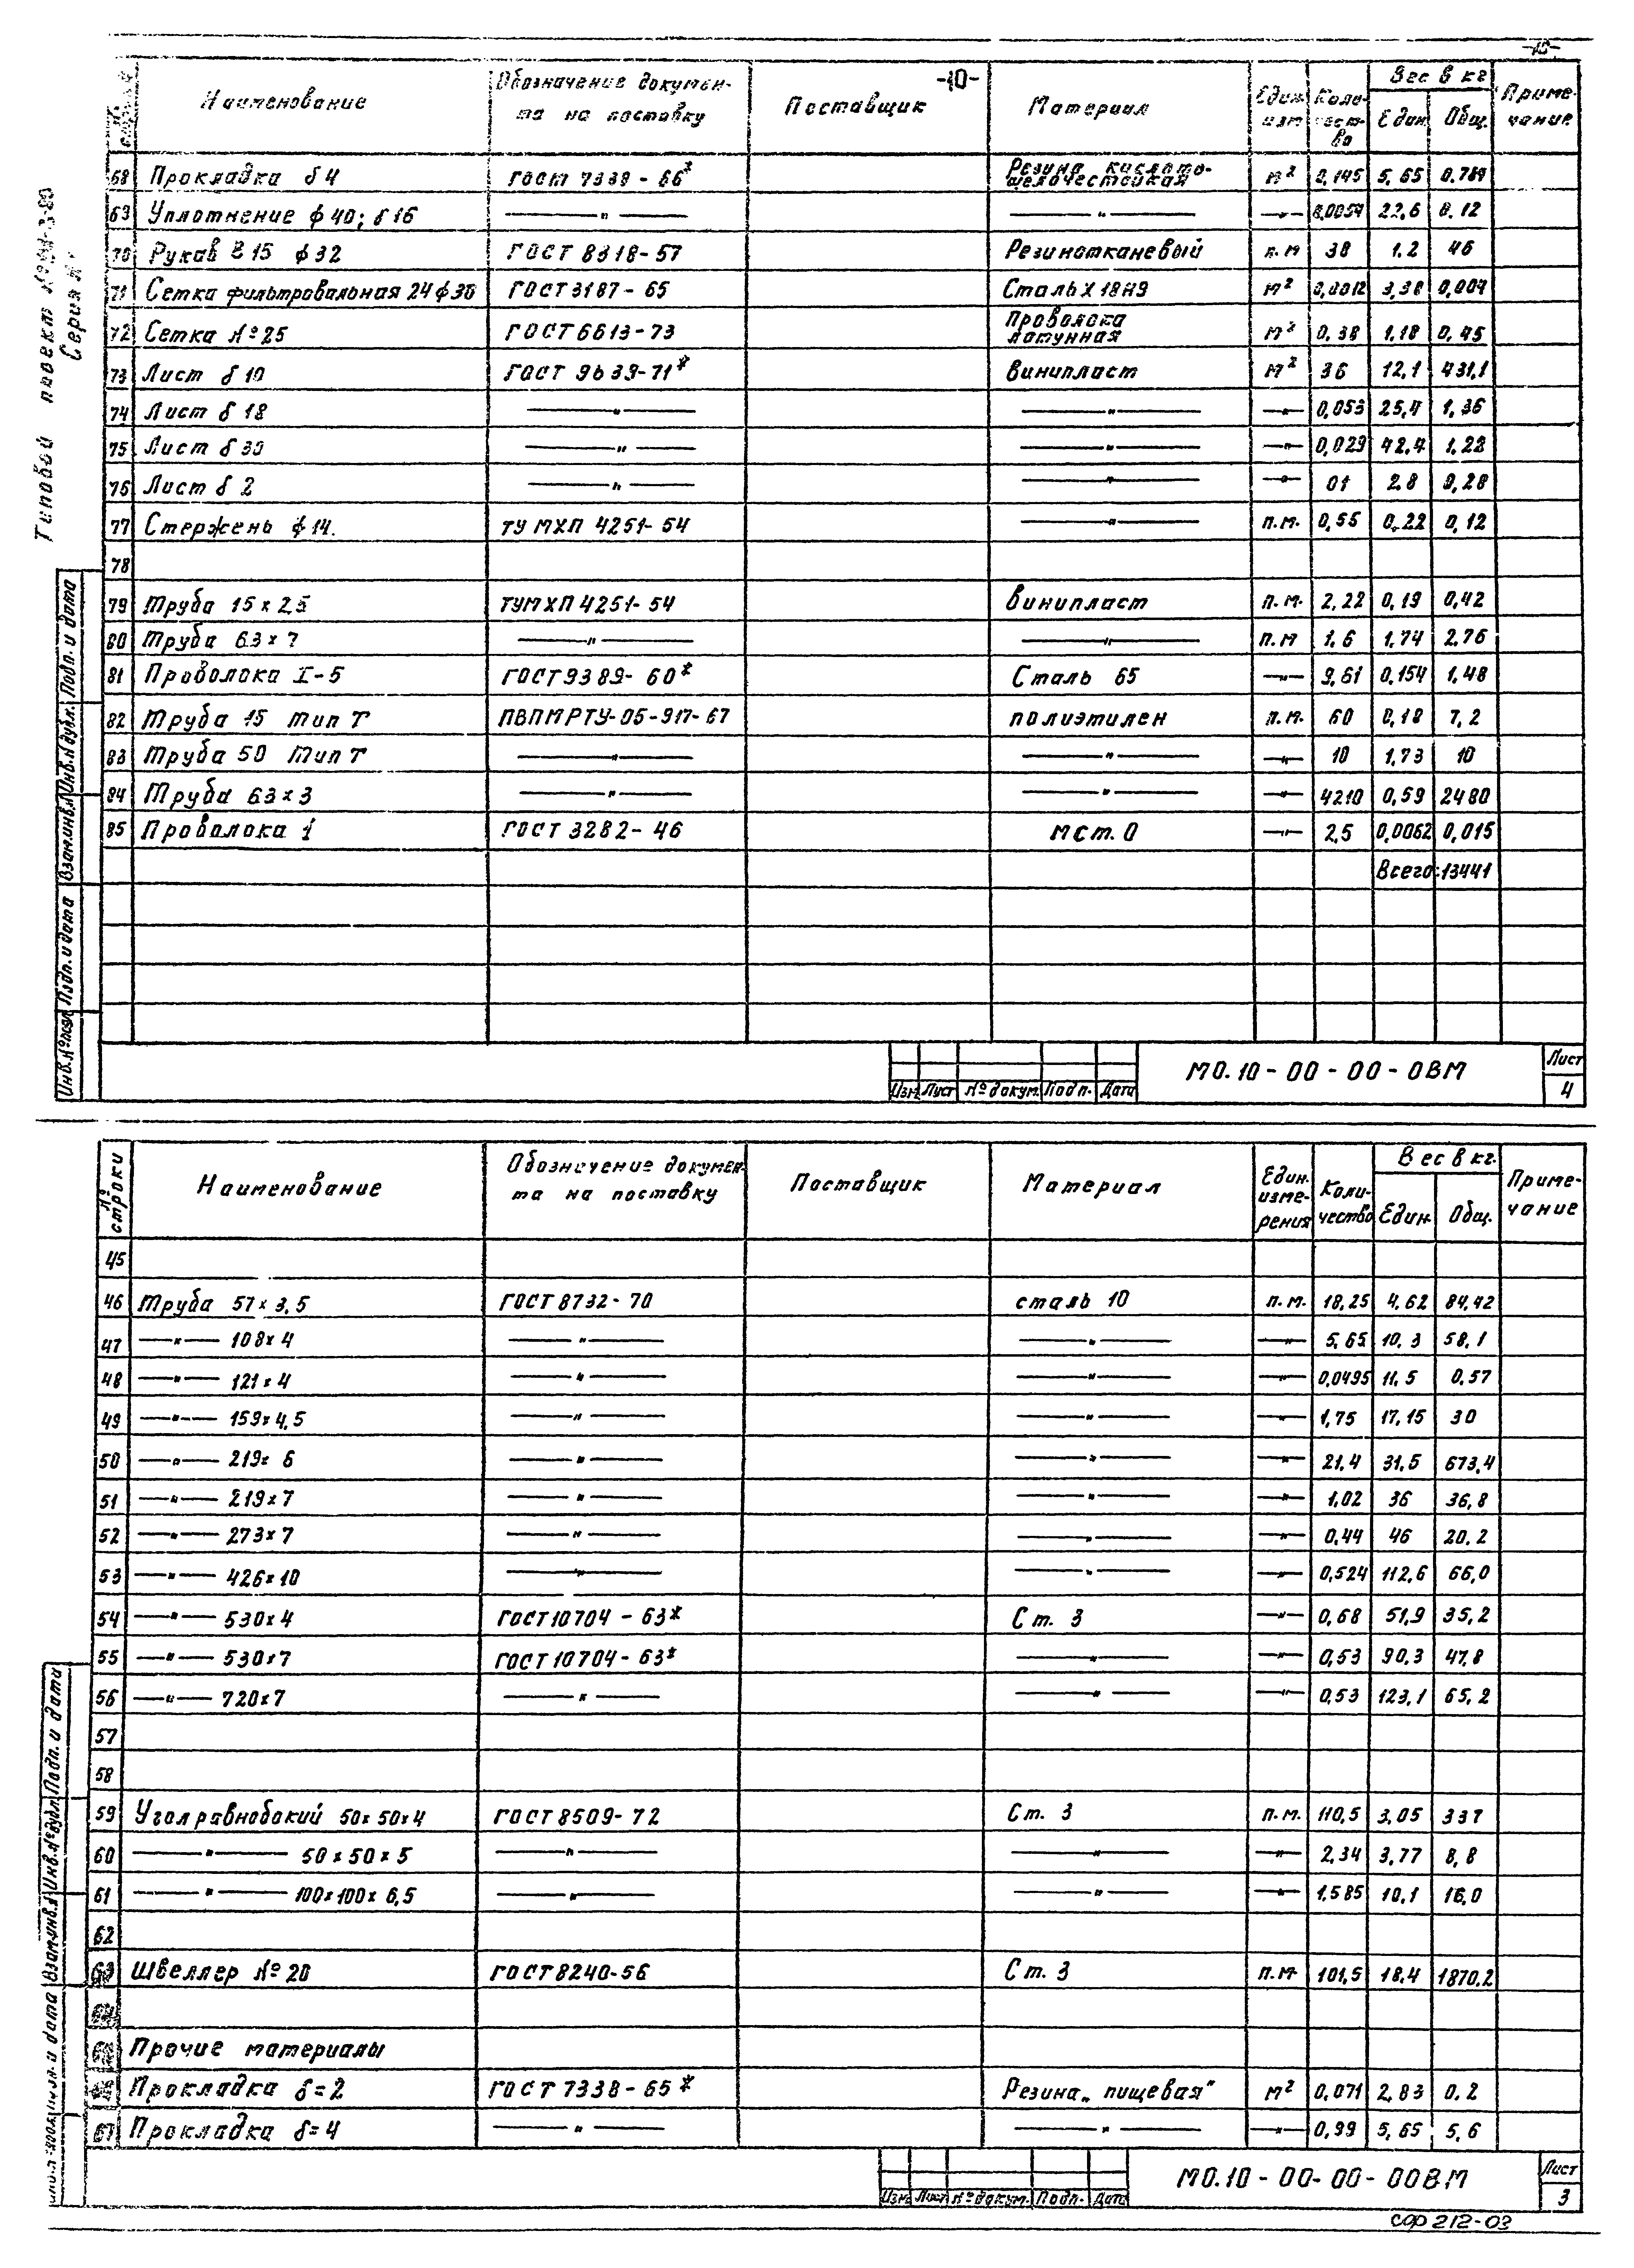 -10-
-10-
Наименование | Обозначение документа на поставку | Поставщик | Материал | Един. изм | Количество | Вес в кг Един. Общ. | Примечание
68 Прокладка δ 4 ГОСТ 7339-66* Резина кислотощелочестойкая м² 0,145 5,65
69 Уплотнение ф 40; δ 16 —"— —"— —"— 0,0054 22,6 0,12
70 Рукав В 15 ф 32 ГОСТ 8318-57 Резинотканевый п.м 38 1,2 46
71 Сетка фильтровальная ГОСТ 3187-65 Сталь Х18Н9 м² 0,0012 3,38 0,004
72 Сетка №25 ГОСТ 6613-73 Проволока латунная м² 0,38 1,18 0,45
73 Лист δ 10 ГОСТ 9639-71* Винипласт м² 36 12,1 431,1
74 Лист δ 18 —"— —"— —"— 0,053 25,4 1,36
75 Лист δ 30 —"— —"— —"— 0,029 42,4 1,22
76 Лист δ 2 —"— —"— —"— 01 2,8 0,28
77 Стержень ф 14. ТУ МХП 4251-54 —"— п.м. 0,55 0,22 0,12
78
79 Труба 15 х 2,5 ТУМХП 4251-54 Винипласт п.м. 2,22 0,19 0,42
80 Труба 63 х 7 —"— —"— п.м 1,6 1,74 2,76
81 Проволока I-5 ГОСТ 9389-60* Сталь 65 —"— 9,61 0,154 1,48
82 Труба 15 тип Т ПВПМРТУ-05-917-67 полиэтилен п.м. 60 0,18 7,2
83 Труба 50 тип Т —"— —"— —"— 10 1,73 10
84 Труба 63 х 3 —"— —"— —"— 4210 0,59 2480
85 Проволока 1 ГОСТ 3282-46 мст. 0 —"— 2,5 0,0062 0,015
Всего: 13441
Изм. Лист № докум. Подп. Дата
МО.10-00-00-0ВМ
Лист 4
Типовой проект
Серия
Инв.№подл. Подп. и дата Взам.инв.№ Инв.№дубл. Подп. и дата
№ строки | Наименование | Обозначение документа на поставку | Поставщик | Материал | Един. измерения | Количество | Вес в кг. Един. Общ. | Примечание
45
46 Труба 57 х 3,5 ГОСТ 8732-70 сталь 10 п.м. 18,25 4,62 84,42
47 —"— 108 х 4 —"— —"— —"— 5,65 10,3 58,1
48 —"— 121 х 4 —"— —"— —"— 0,0495 11,5 0,57
49 —"— 159 х 4,5 —"— —"— —"— 1,75 17,15 30
50 —"— 219 х 6 —"— —"— —"— 21,4 31,5 673,4
51 —"— 219 х 7 —"— —"— —"— 1,02 36 36,8
52 —"— 273 х 7 —"— —"— —"— 0,44 46 20,2
53 —"— 426 х 10 —"— —"— —"— 0,524 112,6 66,0
54 —"— 530 х 4 ГОСТ 10704-63* Ст. 3 —"— 0,68 51,9 35,2
55 —"— 530 х 7 ГОСТ 10704-63* —"— —"— 0,53 90,3 47,8
56 —"— 720 х 7 —"— —"— —"— 0,53 123,1 65,2
57
58
59 Угол равнобокий 50 х 50 х 4 ГОСТ 8509-72 Ст. 3 п.м. 110,5 3,05 337
60 —"— 50 х 50 х 5 —"— —"— —"— 2,34 3,77 8,8
61 —"— 100 х 100 х 6,5 —"— —"— —"— 1,585 10,1 16,0
62
63 Швеллер №20 ГОСТ 8240-56 Ст. 3 п.м. 101,5 18,4 1870,2
Прочие материалы
Прокладка δ=2 ГОСТ 7338-65* Резина „пищевая" м² 0,071 2,83 0,2
67 Прокладка δ=4 —"— —"— —"— 0,99 5,65 5,6
Изм. Лист № докум. Подп. Дата
МО.10-00-00-00ВМ
Лист 3
и дата Взам.инв.№ Инв.№дубл. Подп. и дата
сф 212-03